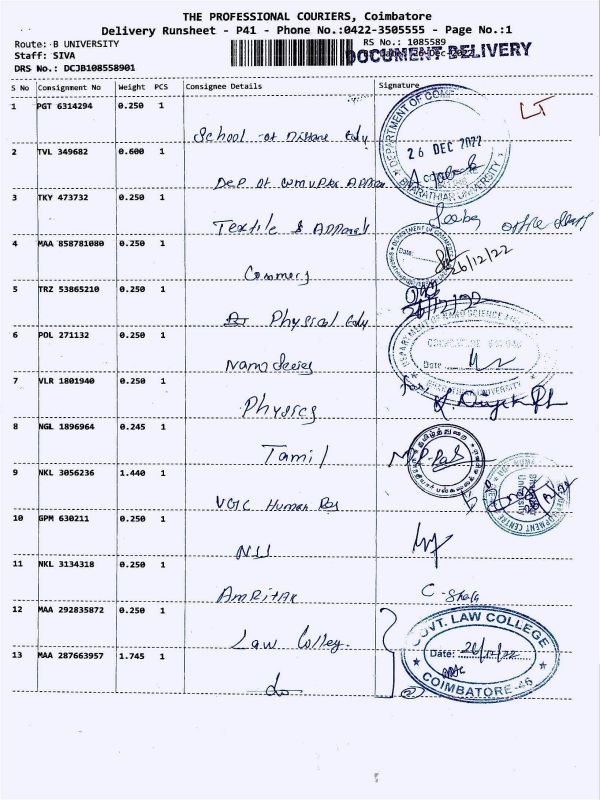 THE PROFESSIONAL COURIERS, Coimbatore
Delivery Runsheet - P41 - Phone No.:0422-3505555 - Page No.:1
Route: B UNIVERSITY
RS No.: 1085589
Staff: SIVA
DOCUMENT DELIVERY
DRS No.: DCJB108558901
S No Consignment No Weight PCS Consignee Details Signature
1 PGT 6314294 0.250 1
School of Distane Edy
DEPARTMENT OF COM
26 DEC 2022
BHARATHIAR UNIVERSITY
2 TVL 349682 0.600 1
Dep of Computer Appn
3 TKY 473732 0.250 1
Textile & Apparel
office staff
4 MAA 858781080 0.250 1
Commerj
DEPARTMENT OF COMMERCE
Date:
26/12/22
5 TRZ 53865210 0.250 1
Physical Edy
6 POL 271132 0.250 1
Nano Scies
DEPARTMENT OF NANO SCIENCE
Date
BHARATHIAR UNIVERSITY
7 VLR 1801940 0.250 1
Physics
for
8 NGL 1896964 0.245 1
Tamil
தமிழ்த்துறை
9 NKL 3056236 1.440 1
UGC Human Res
10 GPM 630211 0.250 1
11 NKL 3134318 0.250 1
Amritak
12 MAA 292835872 0.250 1
Law Colley.
GOVT. LAW COLLEGE
Date: 26/12/22
COIMBATORE-46
13 MAA 287663957 1.745 1
do
2